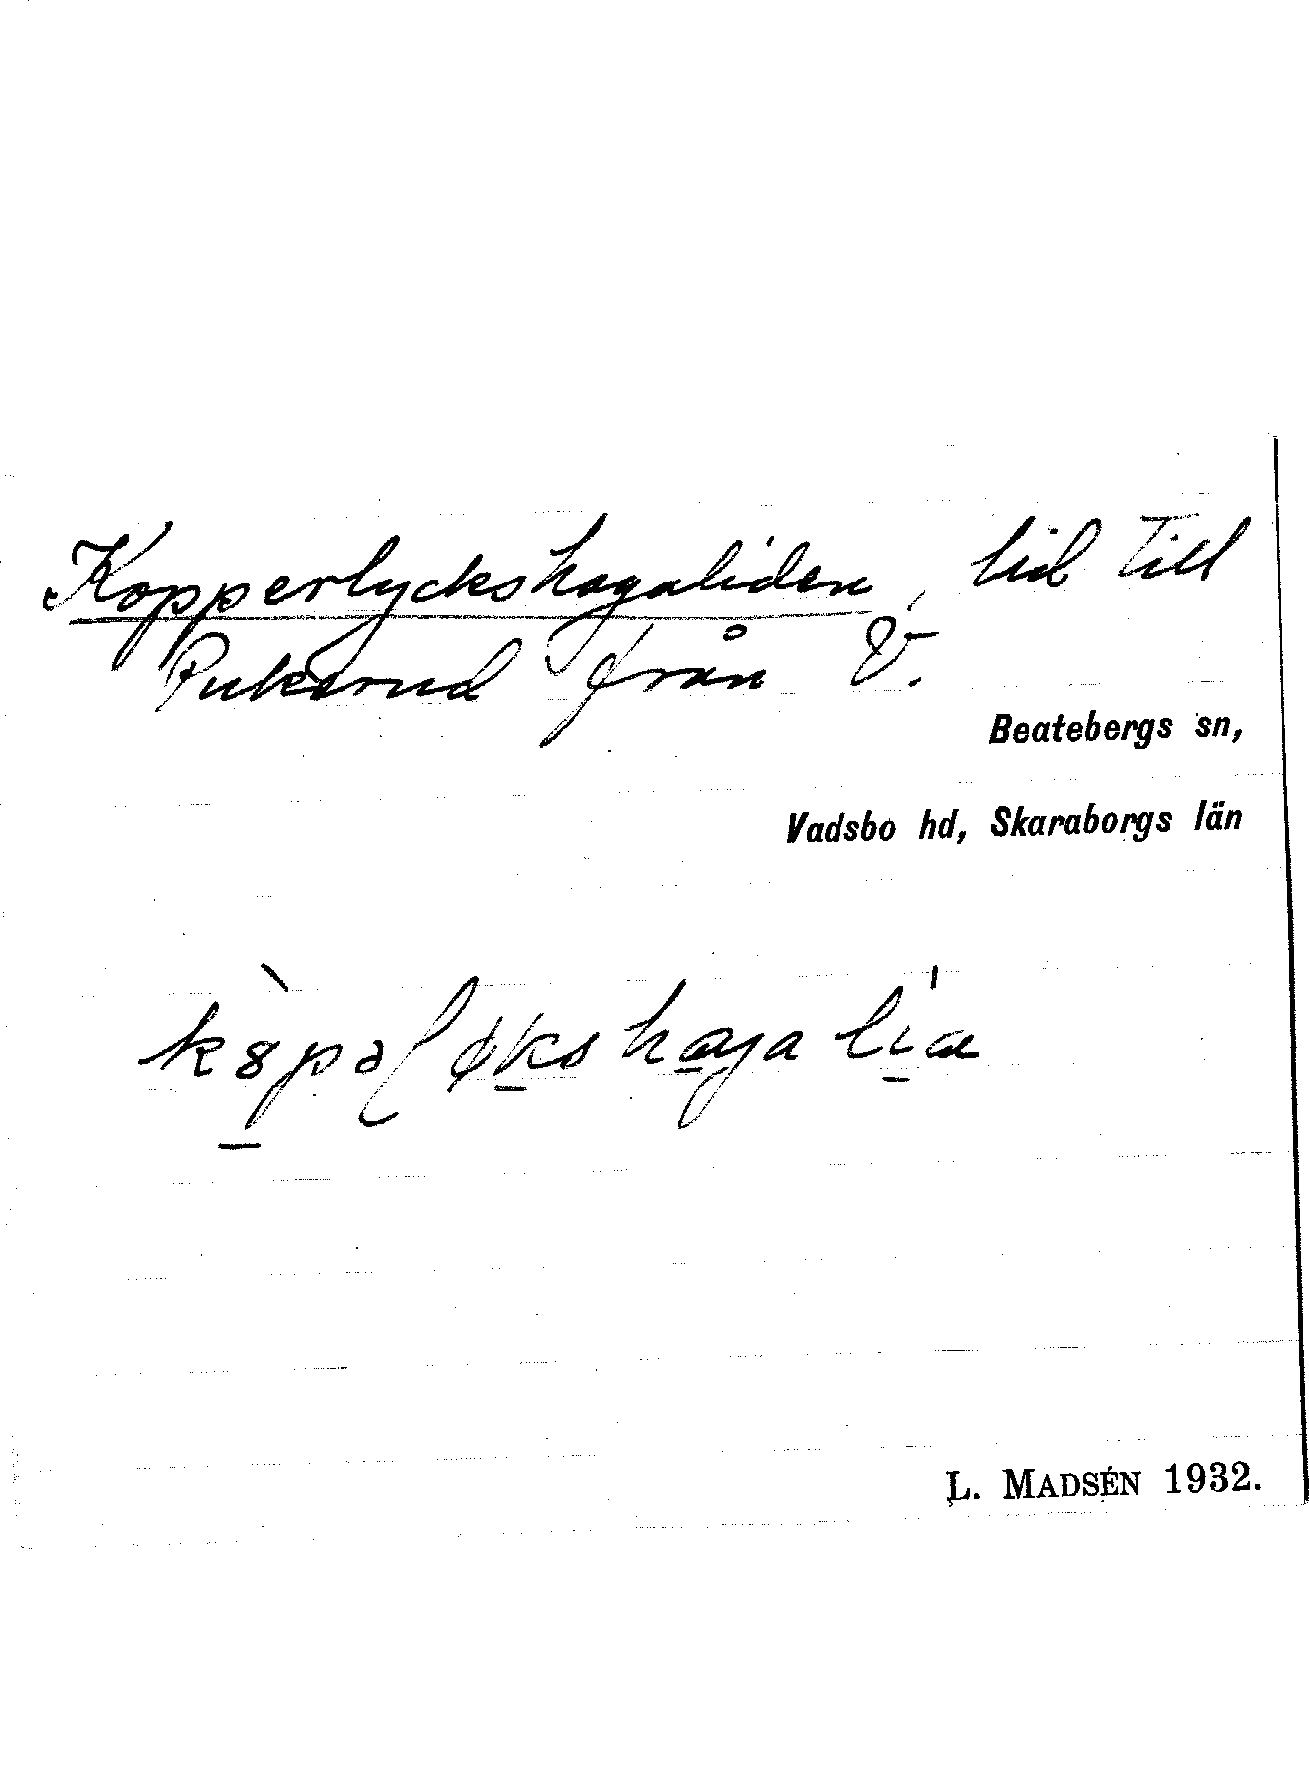 Kopperlyckshagaliden, lid till
Pukerud från V.
Beatebergs sn,
Vadsbo hd, Skaraborgs län
L. MADSÉN 1932.